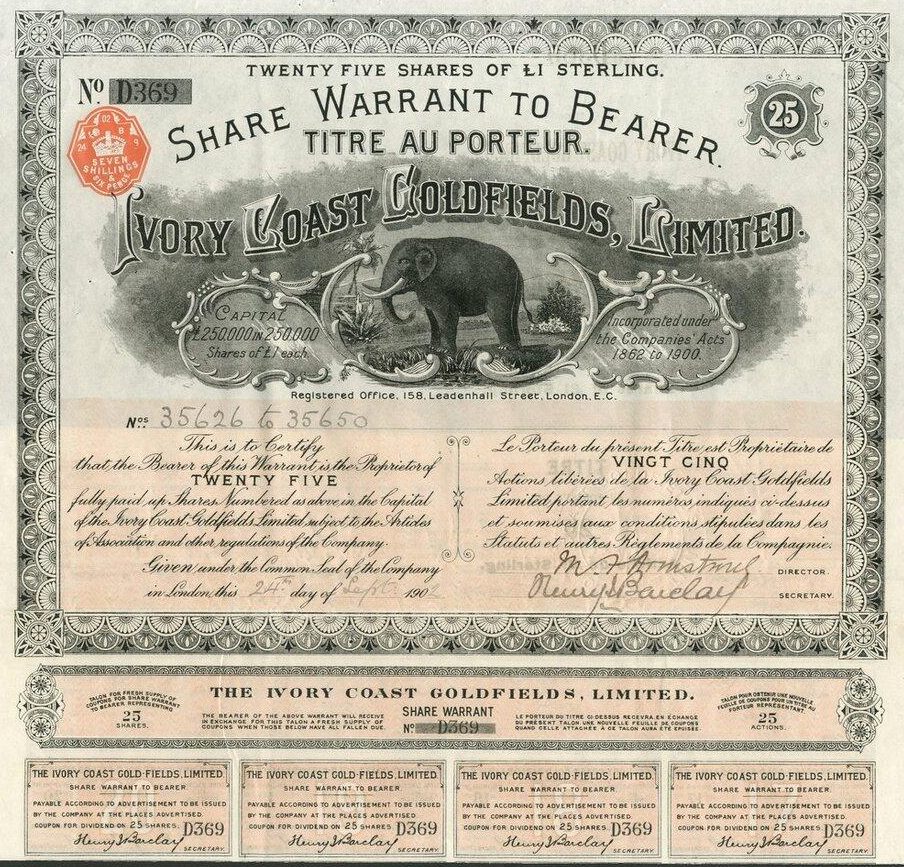 TWENTY FIVE SHARES OF £1 STERLING.
No. D369
SHARE WARRANT TO BEARER.
25
TITRE AU PORTEUR.
02
B
24
9
SEVEN
SHILLINGS
&
SIX PENCE
IVORY COAST GOLDFIELDS, LIMITED.
CAPITAL
£250,000 IN 250,000
Shares of £1 each
Incorporated under
the Companies' Acts
1862 to 1900.
Registered Office, 158, Leadenhall Street, London, E.C.
Nos. 35626 to 35650
This is to Certify
that the Bearer of this Warrant is the Proprietor of
TWENTY FIVE
fully paid up Shares Numbered as above in the Capital
of the Ivory Coast Goldfields Limited subject to the Articles
of Association and other regulations of the Company.
Given under the Common Seal of the Company
in London this 24th day of Sept. 1902
Le Porteur du présent Titre est Propriétaire de
VINGT CINQ
Actions libérées de la Ivory Coast Goldfields
Limited portant les numéros indiqués ci-dessus
et soumises aux conditions stipulées dans les
Statuts et autres Règlements de la Compagnie.
DIRECTOR.
Henry J Barclay SECRETARY.
TALON FOR FRESH SUPPLY OF
COUPONS FOR SHARE WARRANT
TO BEARER REPRESENTING
25
SHARES.
THE IVORY COAST GOLDFIELDS, LIMITED.
SHARE WARRANT
No. D369
THE BEARER OF THE ABOVE WARRANT WILL RECEIVE
IN EXCHANGE FOR THIS TALON A FRESH SUPPLY OF
COUPONS WHEN THOSE BELOW HAVE ALL FALLEN DUE.
LE PORTEUR DU TITRE CI-DESSUS RECEVRA EN ECHANGE
DU PRESENT TALON UNE NOUVELLE FEUILLE DE COUPONS
QUAND CELLE ATTACHÉE A CE TALON AURA ETE EPUISEE.
TALON POUR OBTENIR UNE NOUVELLE
FEUILLE DE COUPONS POUR UN TITRE AU
PORTEUR REPRESENTANT
25
ACTIONS.
THE IVORY COAST GOLD-FIELDS, LIMITED.
SHARE WARRANT TO BEARER
PAYABLE ACCORDING TO ADVERTISEMENT TO BE ISSUED
BY THE COMPANY AT THE PLACES ADVERTISED.
COUPON FOR DIVIDEND ON 25 SHARES. D369
Henry J Barclay SECRETARY.
THE IVORY COAST GOLD-FIELDS, LIMITED.
SHARE WARRANT TO BEARER.
PAYABLE ACCORDING TO ADVERTISEMENT TO BE ISSUED
BY THE COMPANY AT THE PLACES ADVERTISED.
COUPON FOR DIVIDEND ON 25 SHARES. D369
Henry J Barclay SECRETARY.
THE IVORY COAST GOLD-FIELDS, LIMITED.
SHARE WARRANT TO BEARER.
PAYABLE ACCORDING TO ADVERTISEMENT TO BE ISSUED
BY THE COMPANY AT THE PLACES ADVERTISED.
COUPON FOR DIVIDEND ON 25 SHARES. D369
Henry J Barclay SECRETARY.
THE IVORY COAST GOLD-FIELDS, LIMITED.
SHARE WARRANT TO BEARER.
PAYABLE ACCORDING TO ADVERTISEMENT TO BE ISSUED
BY THE COMPANY AT THE PLACES ADVERTISED.
COUPON FOR DIVIDEND ON 25 SHARES. D369
Henry J Barclay SECRETARY.